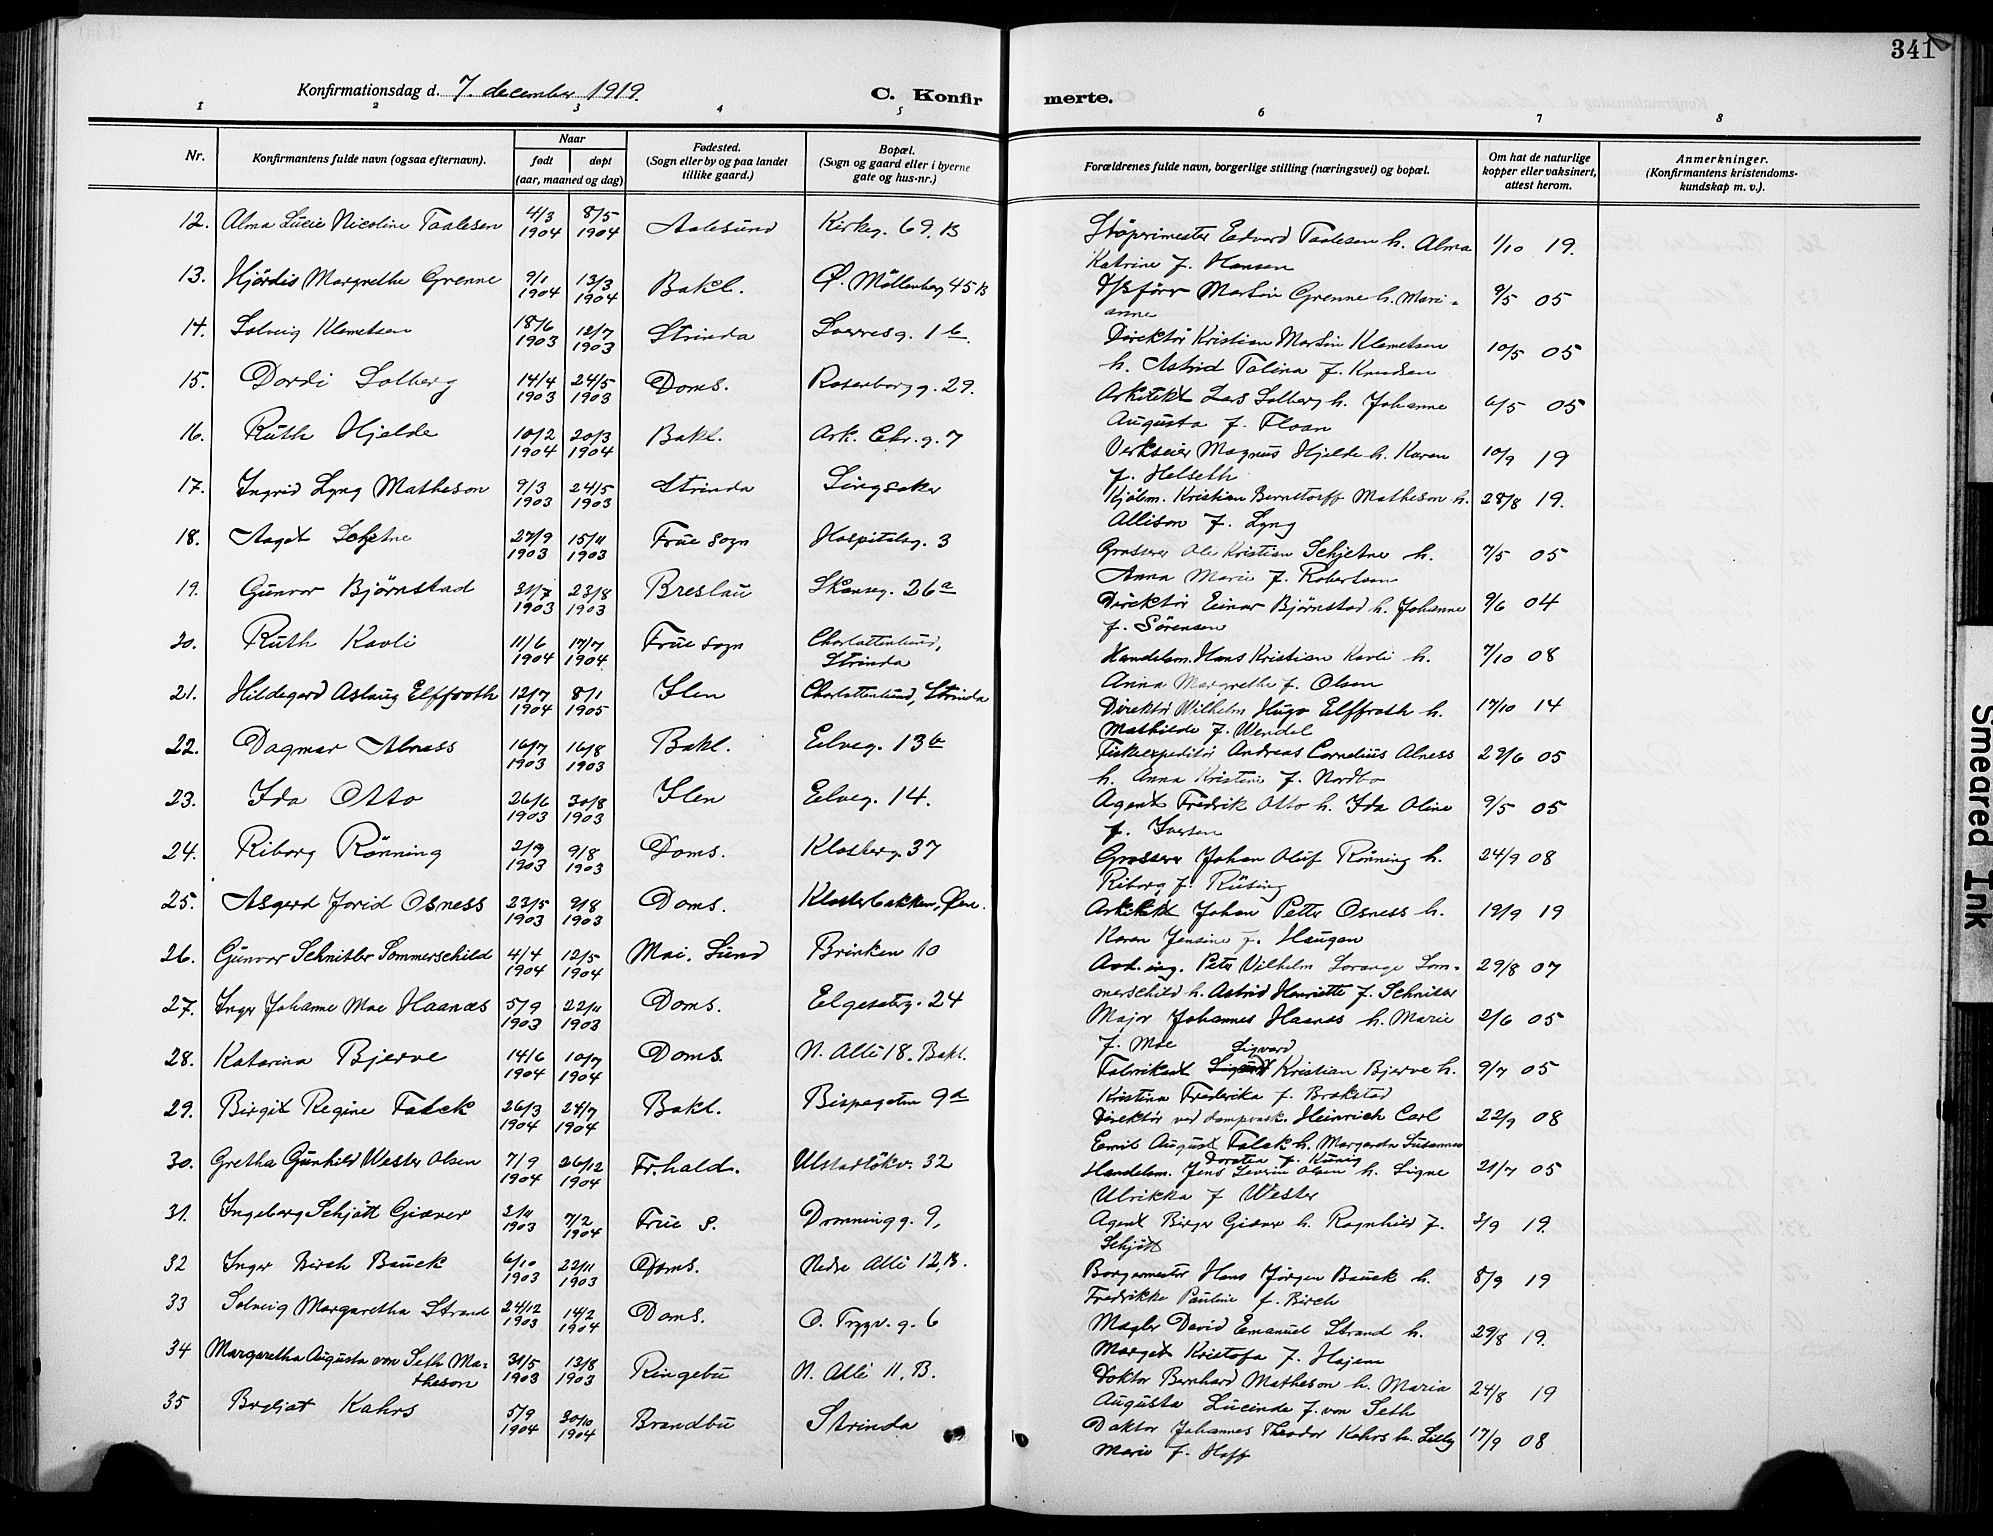 341
Konfirmationsdag d. 7. december 1919.
C. Konfirmerte.
1 2 3 4 5 6 7 8
Nr. Konfirmantens fulde navn (ogsaa efternavn). Naar født døpt (aar, maaned og dag) Fødested. (Sogn eller by og paa landet tillike gaard.) Bopæl. (Sogn og gaard eller i byerne gate og hus-nr.) Forældrenes fulde navn, borgerlige stilling (næringsvei) og bopæl. Om hat de naturlige kopper eller vaksinert, attest herom. Anmerkninger. (Konfirmantens kristendomskundskap m. v.).
12. Alma Lucie Nicoline Taalesen 4/3 1904 8/5 1904 Aalesund Kirkeg. 69.B Støperimester Edvard Taalesen h. Alma Katrine f. Hansen 1/10 19.
13. Hjørdis Margrethe Grenne 9/1 1904 13/3 1904 Bakl. Ø. Møllenberg 45B D/sfører Martin Grenne h. Marianne 9/5 05
14. Solveig Klemetsen 18/6 1903 12/7 1903 Strinda Sverresg. 1b. Direktør Kristian Martin Klemetsen h. Astrid Talina f. Knudsen 10/5 05
15. Dordi Solberg 14/4 1903 24/5 1903 Doms. Rosenborg g. 29. Arkitekt Lars Solberg h. Johanne Augusta f. Floan 6/5 05
16. Ruth Hjelde 10/2 1904 20/3 1904 Bakl. Ark. Chr. g. 7 Verkseier Magnus Hjelde h. Karen f. Helseth 10/9 19
17. Ingrid Lyng Matheson 9/3 1903 24/5 1903 Strinda Singsaker Kjøbm. Kristian Bernstorff Matheson h. Allison f. Lyng 28/8 19.
18. Aagot Schjetne 27/9 1903 15/11 1903 Frue sogn Hospitalsg. 3 Grosserer Ole Kristian Schjetne h. Anna Marie f. Robertsen 7/5 05
19. Gunvor Bjørnstad 31/7 1903 23/8 1903 Breslau Skanseg. 26a Direktør Einar Bjørnstad h. Johanne f. Sørensen 9/6 04
20. Ruth Kavli 11/6 1904 17/7 1904 Frue sogn Charlottenlund, Strinda Handelsm. Hans Kristian Kavli h. Anna Margrethe f. Olsen 7/10 08
21. Hildegard Aslaug Elffroth 12/7 1904 8/1 1905 Ilen Charlottenlund, Strinda Direktør Vilhelm Hugo Elffroth h. Mathilde f. Wendel 17/10 14
22. Dagmar Alness 16/7 1903 16/8 1903 Bakl. Eelveg. 13b Fiskeexpeditør Andreas Cornelius Alness h. Anna Kristine f. Nordbo 27/6 05
23. Ida Otto 26/6 1903 30/8 1903 Ilen Eelveg. 14. Agent Fredrik Otto h. Ida Oline f. Iversen 9/5 05
24. Riborg Rønning 2/7 1903 9/8 1903 Doms. Klosterg. 37 Grosserer Johan Oluf Rønning h. Riborg f. Rusing 24/9 08
25. Asgerd Jorid Osness 23/5 1903 9/8 1903 Doms. Klosterbakken, Øen. Arkitekt Johan Petter Osness h. Karen Jensine f. Haugan 19/9 19
26. Gunvor Schnitler Sommerschild 4/4 1904 12/5 1904 Mai. Sund Brinken 10 Avd. ing. Peter Vilhelm Lorange Sommerschild h. Astrid Henriette f. Schnitler 29/8 07
27. Inger Johanne Moe Haanæs 5/9 1903 22/11 1903 Doms. Elgeseterg. 24 Major Johannes Haanæs h. Marie f. Moe 2/6 05
28. Katarina Bjerve 14/6 1904 10/7 1904 Doms. N. Allé 18. Bakl. Fabrikant Sigvard Kristian Bjerve h. Kristina Frederika f. Brakstad 9/7 05
29. Birgit Regine Falck 26/3 1904 24/7 1904 Bakl. Bispegaten 9d Direktør ved dampvask. Heinrich Carl Emil August Falck h. Margareta Susannes Dorotea f. Künig 22/9 08
30. Gretha Gunhild Wester Olsen 7/9 1904 26/12 1904 Fr.hald. Ulstadløkv. 32 Handelsm. Jens Severin Olsen h. Signe Ulrikka f Wester 21/7 05
31. Ingeborg Schjøtt Giæver 3/11 1903 7/2 1904 Frue S. Dronningg. 9, Agent Birger Giæver h. Ragnhild f. Schjøtt 3/9 19.
32 Inger Birch Bauck 6/10 1903 22/11 1903 Doms. Nedre Allé 12,B. Borgermester Hans Jørgen Bauck h. Fredrikke Pauline f. Birch 8/9 19
33 Solveig Margaretha Strand 24/12 1903 14/2 1904 Doms. O. Trygv. g. 6 Mægler David Emanuel Strand h. Margit Kristofa f. Hajem 29/8 19.
34 Margaretha Augusta von Seth Matheson 31/5 1903 13/8 1903 Ringebu N. Allé 11.B. Doktor Bernhard Matheson h. Maria Augusta Lucinde f. von Seth 24/8 19
35 Brgljot Kahrs 5/9 1904 30/10 1904 Brandbu Strinda Doktor Johannes Theodor Kahrs h. Lilly Marie f. Hoff 17/9 08
Smeared Ink